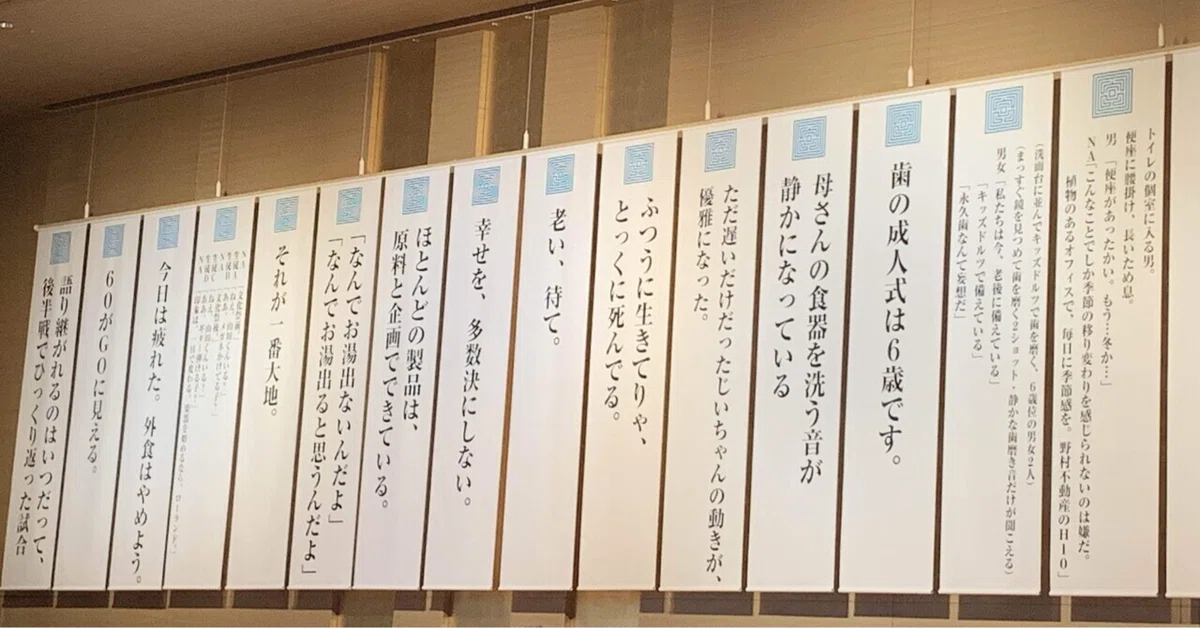 トイレの個室に入る男。
便座に腰掛け、長いため息。
男「便座があったかい。もう…冬か…」
NA「こんなことでしか季節の移り変わりを感じられないのは嫌だ。
植物のあるオフィスで、毎日に季節感を。野村不動産のH10」
(洗面台に並んでキッズドルツで歯を磨く、6歳位の男女2人)
(まっすぐ鏡を見つめて歯を磨く2ショット・静かな歯磨き音だけが聞こえる)
男女「私たちは今、老後に備えている」
「キッズドルツで備えている」
「永久歯なんて妄想だ」
歯の成人式は6歳です。
母さんの食器を洗う音が
静かになっている
ただ遅いだけだったじいちゃんの動きが、
優雅になった。
ふつうに生きてりゃ、
とっくに死んでる。
老い、待て。
幸せを、多数決にしない。
ほとんどの製品は、
原料と企画でできている。
「なんでお湯出ないんだよ」
「なんでお湯出ると思うんだよ」
それが一番大地。
NA
生徒A
生徒B
NA
生徒C
生徒D
NA
今日は疲れた。外食はやめよう。
60がGOに見える。
語り継がれるのはいつだって、
後半戦でひっくり返った試合